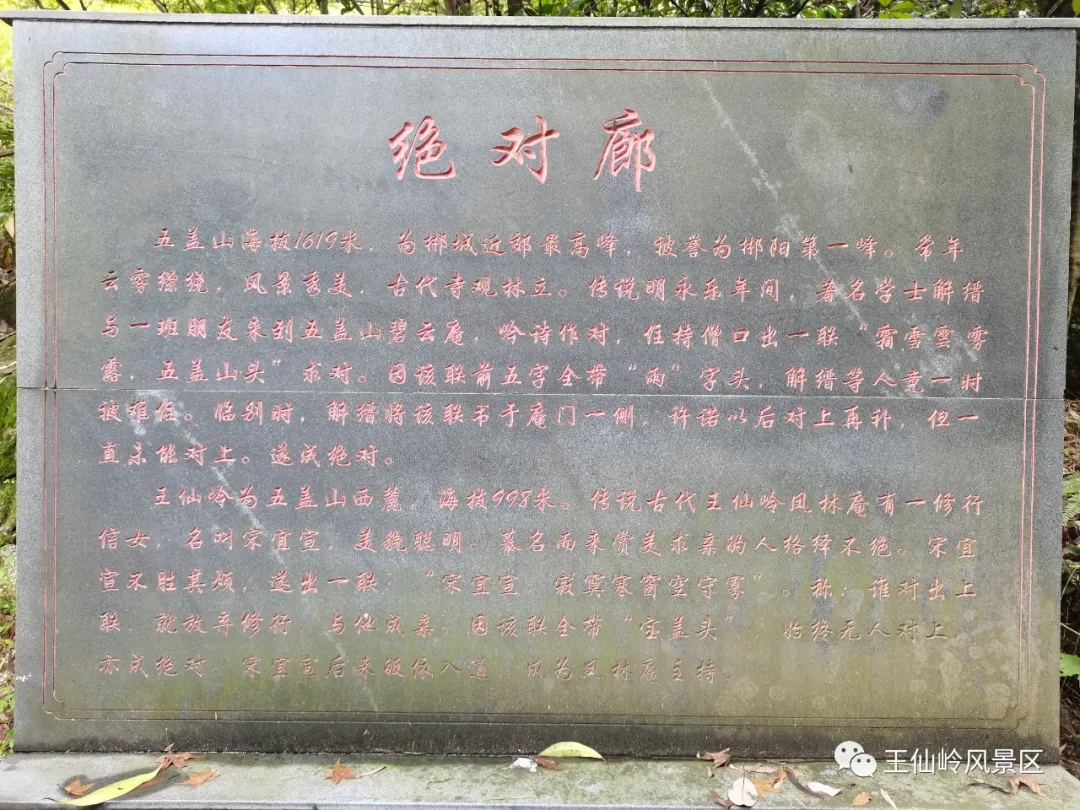 绝对廊
五盖山海拔1619米，为郴城近郊最高峰，被誉为郴阳第一峰。常年
云雾缭绕，风景秀美，古代寺观林立。传说明永乐年间，著名学士解缙
与一班朋友来到五盖山碧云庵，吟诗作对，住持僧口出一联“霜雪雲雾
露，五盖山头”求对。因该联前五字全带“雨”字头，解缙等人竟一时
被难住。临别时，解缙将该联书于庵门一侧，许诺以后对上再补，但一
直未能对上。遂成绝对。
王仙岭为五盖山西麓，海拔998米。传说古代王仙岭凤林庵有一修行
信女，名叫宋宜宣，美貌聪明。慕名而来赏美求亲的人络绎不绝。宋宜
宣不胜其烦，遂出一联：“宋宜宣，寂寞寒窗空守寡”。称：谁对出上
联，就放弃修行，与他成亲。因该联全带“宝盖头”，始终无人对上，
亦成绝对。宋宜宣后来皈依入道，成为凤林庵主持。
王仙岭风景区